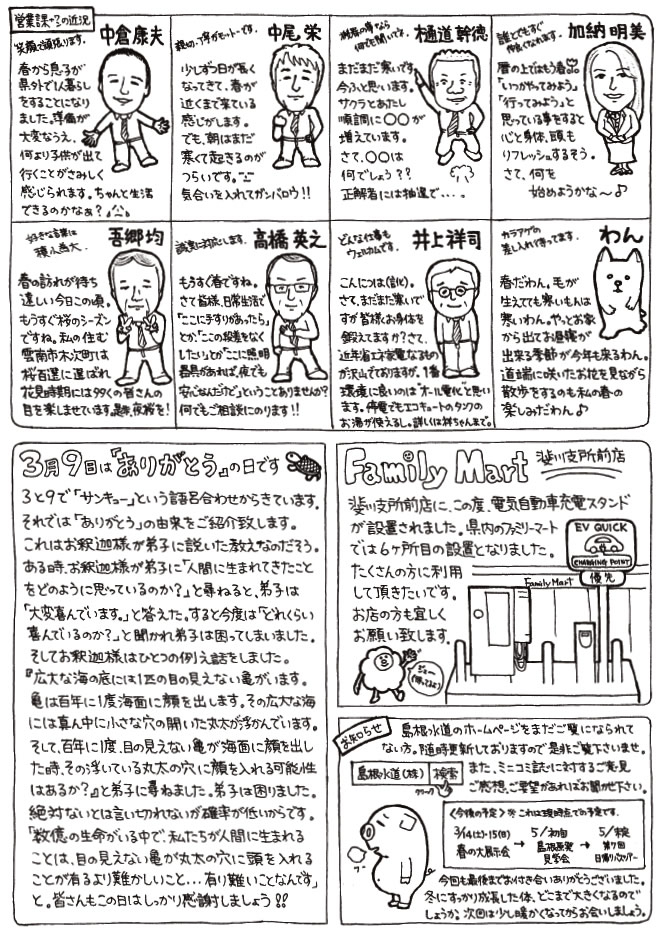 営業課+αの近況
笑顔で頑張ります。
中倉康夫
春から息子が
県外で1人暮らし
をすることになり
ました。準備が
大変なうえ、
何より子供が出て
行くことがさみしく
感じられます。ちゃんと生活
できるのかなぁ?
親切、丁寧がモットーです。
中尾 栄
少しずつ日が長く
なってきて、春が
近くまで来ている
感じがします。
でも、朝はまだ
寒くて起きるのが
つらいです。
気合いを入れてガンバロウ!!
何でも聞いて下さい。
樋道幹徳
まだまだ寒いです。
今ふと思います。
サクラとあたし
順調に〇〇が
増えています。
さて、〇〇は
何でしょう??
正解者には抽選で…。
誰とでもすぐ
仲良くなれます。
加納明美
暦の上ではもう春
「いつかやってみよう」
「行ってみよう」と
思っている事をすると
心と身体、頭も
リフレッシュするそう。
さて、何を
始めようかな~♪
好きな言葉は
積小為大。
吾郷 均
春の訪れが待ち
遠しい今日この頃。
もうすぐ桜のシーズン
ですね。私の住む
雲南市木次町は
桜百選に選ばれ
花見時期には多くの皆さんの
目を楽しませています。是非、夜桜を!
誠実に対応します。
高橋英之
もうすぐ春ですね。
さて皆様、日常生活で
「ここに手すりがあったら」
とか、「この段差をなく
したい」とか「ここに照明
器具があれば、夜でも
安心なんだ」ということありませんか?
何でもご相談にのります!!
どんな仕事も
ウェルカムです。
井上祥司
こんにちは
さて、まだまだ寒いで
すが皆様お身体を
鍛えてますか?さて、
近年省エネ家電なるもの
が沢山でておりますが、1番
環境に良いのは"オール電化"と思い
ます。停電でもエコキュートのタンクの
お湯が使えるし。詳しくは祥ちゃんまで。
カラアゲの
差し入れ待ってます。
わん
春だわん。毛が
生えても寒いもんは
寒いわん。やっとお家
から出てる過程が
出来る季節が今年も来るわん。
道端に咲いたお花を見ながら
散歩をするのも私の春の
楽しみだわん♪
3月9日は『ありがとう』の日です
3と9で「サンキュー」という語呂合わせからきています。
それでは「ありがとう」の由来をご紹介致します。
これはお釈迦様が弟子に説いた教えなのだそう。
ある時、お釈迦様が弟子に「人間に生まれてきたこと
をどのように思っているのか?」と尋ねると、弟子は
「大変喜んでいます。」と答えた。すると今度は「どれくらい
喜んでいるのか?」と聞かれ弟子は困ってしまいました。
そしてお釈迦様はひとつの例え話をしました。
『広大な海の底には1匹の目の見えない亀がいます。
亀は百年に1度海面に顔を出します。その広大な海
には真ん中に小さな穴の開いた丸太が浮かんでいます。
そして、百年に1度、目の見えない亀が海面に顔を出し
た時、その浮いている丸太の穴に顔を入れる可能性
はあるか?』と弟子に尋ねました。弟子は困りました。
絶対ないとは言い切れないが確率が低いからです。
「数億の生命がいる中で、私たちが人間に生まれる
ことは、目の見えない亀が丸太の穴に頭を入れる
ことが有るより難かしいこと…有り難いことなんです」
と。皆さんもこの日はしっかり感謝しましょう!!
Family Mart 斐川支所前店
斐川支所前店に、この度、電気自動車充電スタンド
が設置されました。県内のファミリーマート
では6ヶ所目の設置となりました。
たくさんの方に利用
して頂きたいです。
お店の方も宜しく
お願い致します。
EV QUICK
CHARGING POINT
優先
Family Mart
お知らせ
島根水道のホームページをまだご覧になられて
ない方。随時更新しておりますので是非ご覧下さいませ。
島根水道(株) 検索
クリック
また、ミニコミ誌に対するご意見
ご感想、ご要望があればお聞かせ下さい。
〈今後の予定〉※これは現時点での予定です。
3/14(土)・15(日)
春の大展示会
→
5/初旬
島根原発
見学会
→
5/末定
第7回
日帰りバスツアー
今回も最後までお付き合いありがとうございました。
冬にすっかり成長した体、どこまで大きくなるので
しょうか。次回は少し暖かくなってからお会いしましょう。